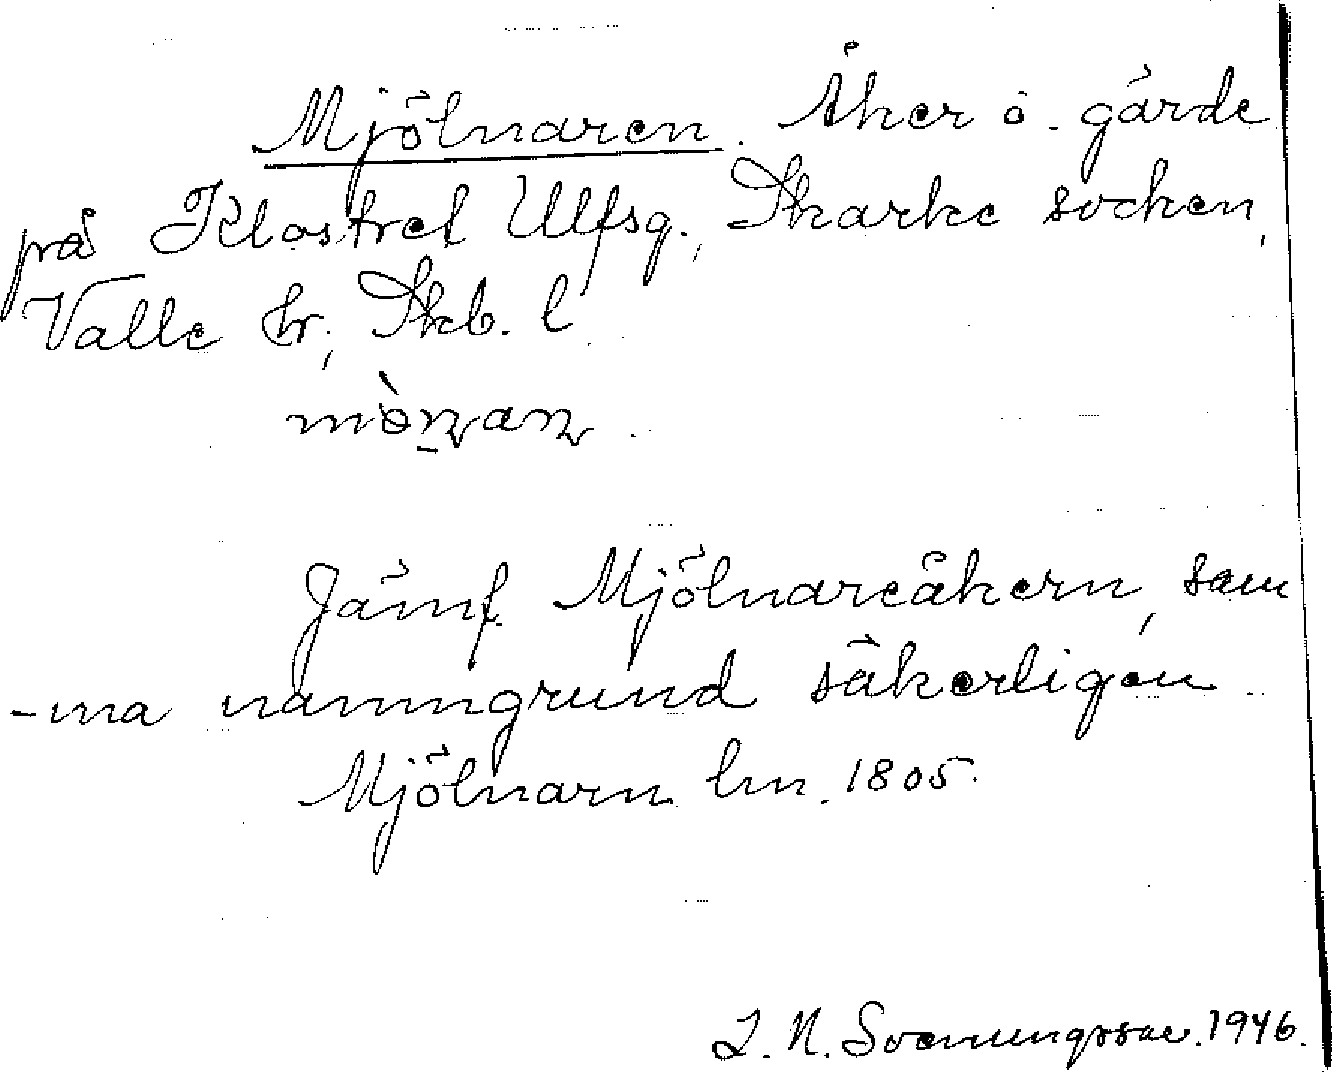 Mjölnaren. Åker o. gärde
på Klostret Ulfsg., Skarke socken,
Valle hr, Skb. l
Jämf. Mjölnareåkern, sam
-ma namngrund säkerligen
Mjölnarn lm. 1805.
L. N. Svenungsson. 1946.